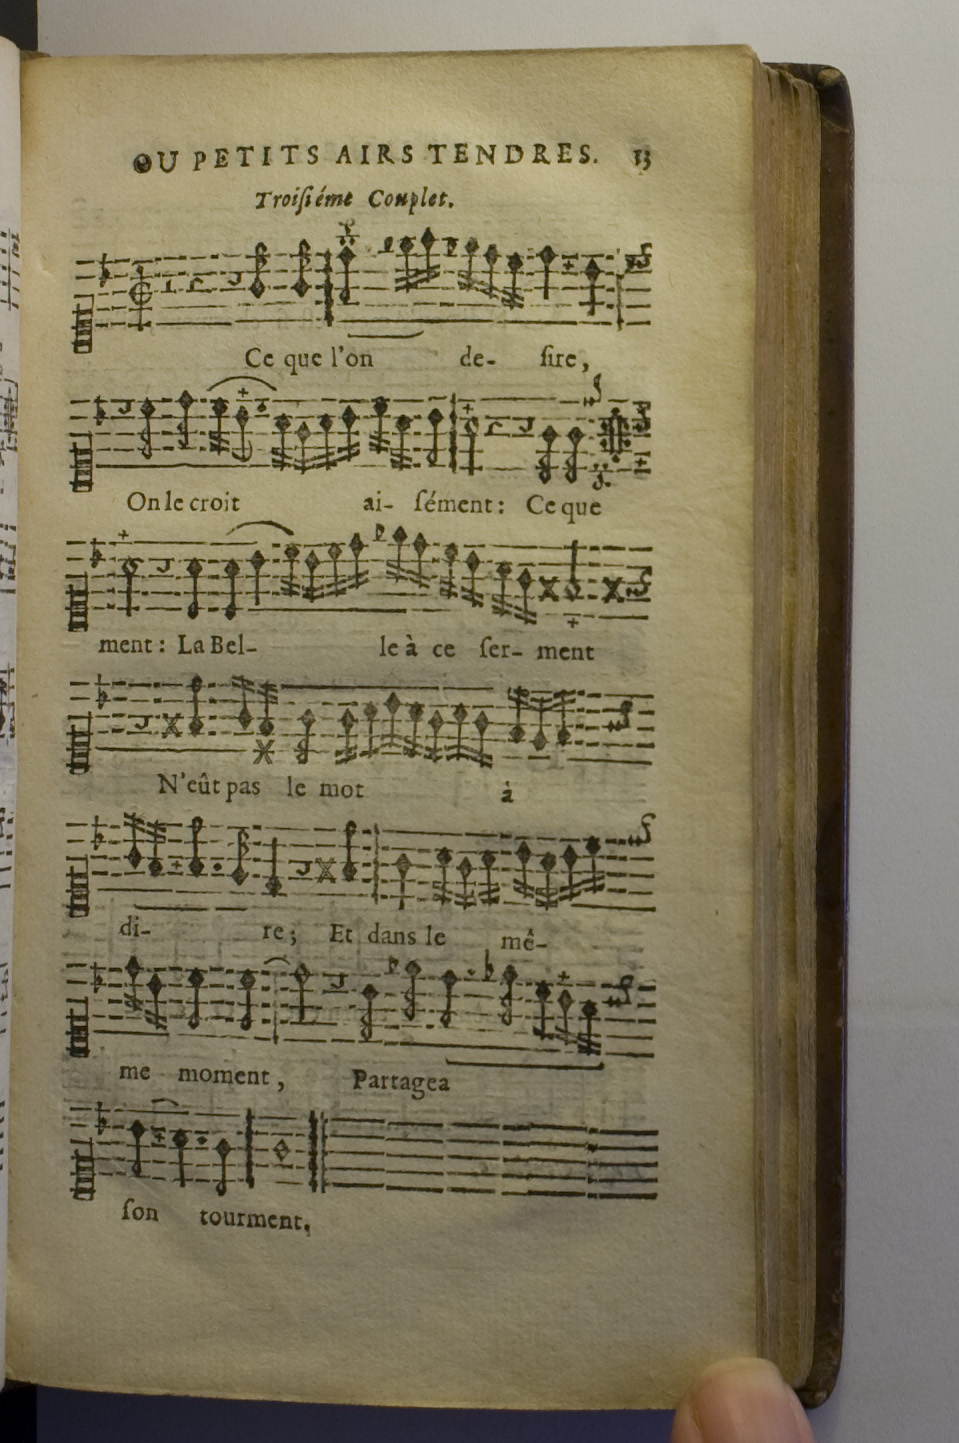 OU PETITS AIRS TENDRES. 13
Troiſiéme Couplet.
Ce que l'on de- ſire,
On le croit ai- ſément: Ce que
ment: La Bel- le à ce ſer- ment
N'eût pas le mot à
di- re; Et dans le mê-
me moment, Partagea
ſon tourment.